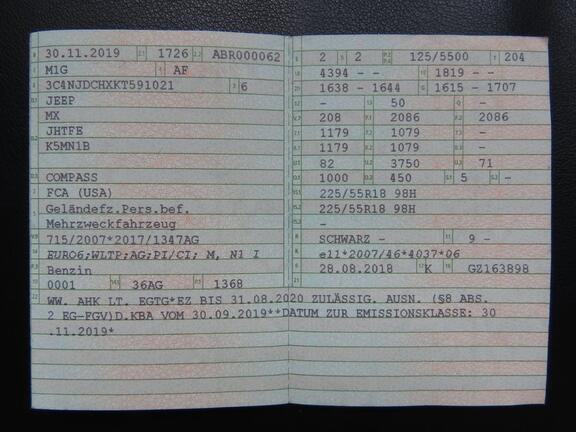 30.11.2019 1726 ABR000062
M1G AF
3C4NJDCHXKT591021 6
JEEP
MX
JHTFE
K5MN1B
COMPASS
FCA (USA)
Geländefz.Pers.bef.
Mehrzweckfahrzeug
715/2007*2017/1347AG
EURO6;WLTP;AG;PI/CI; M, N1 I
Benzin
0001 36AG 1368
2 2 125/5500 204
4394 - - 1819 - -
1638 - 1644 1615 - 1707
- 50 -
208 2086 2086
1179 1079 -
1179 1079 -
82 3750 71
1000 450 5 -
225/55R18 98H
225/55R18 98H
-
SCHWARZ - 9 -
e11*2007/46*4037*06
28.08.2018 K GZ163898
WW. AHK LT. EGTG*EZ BIS 31.08.2020 ZULÄSSIG. AUSN. (§8 ABS.
2 EG-FGV)D.KBA VOM 30.09.2019**DATUM ZUR EMISSIONSKLASSE: 30
.11.2019*